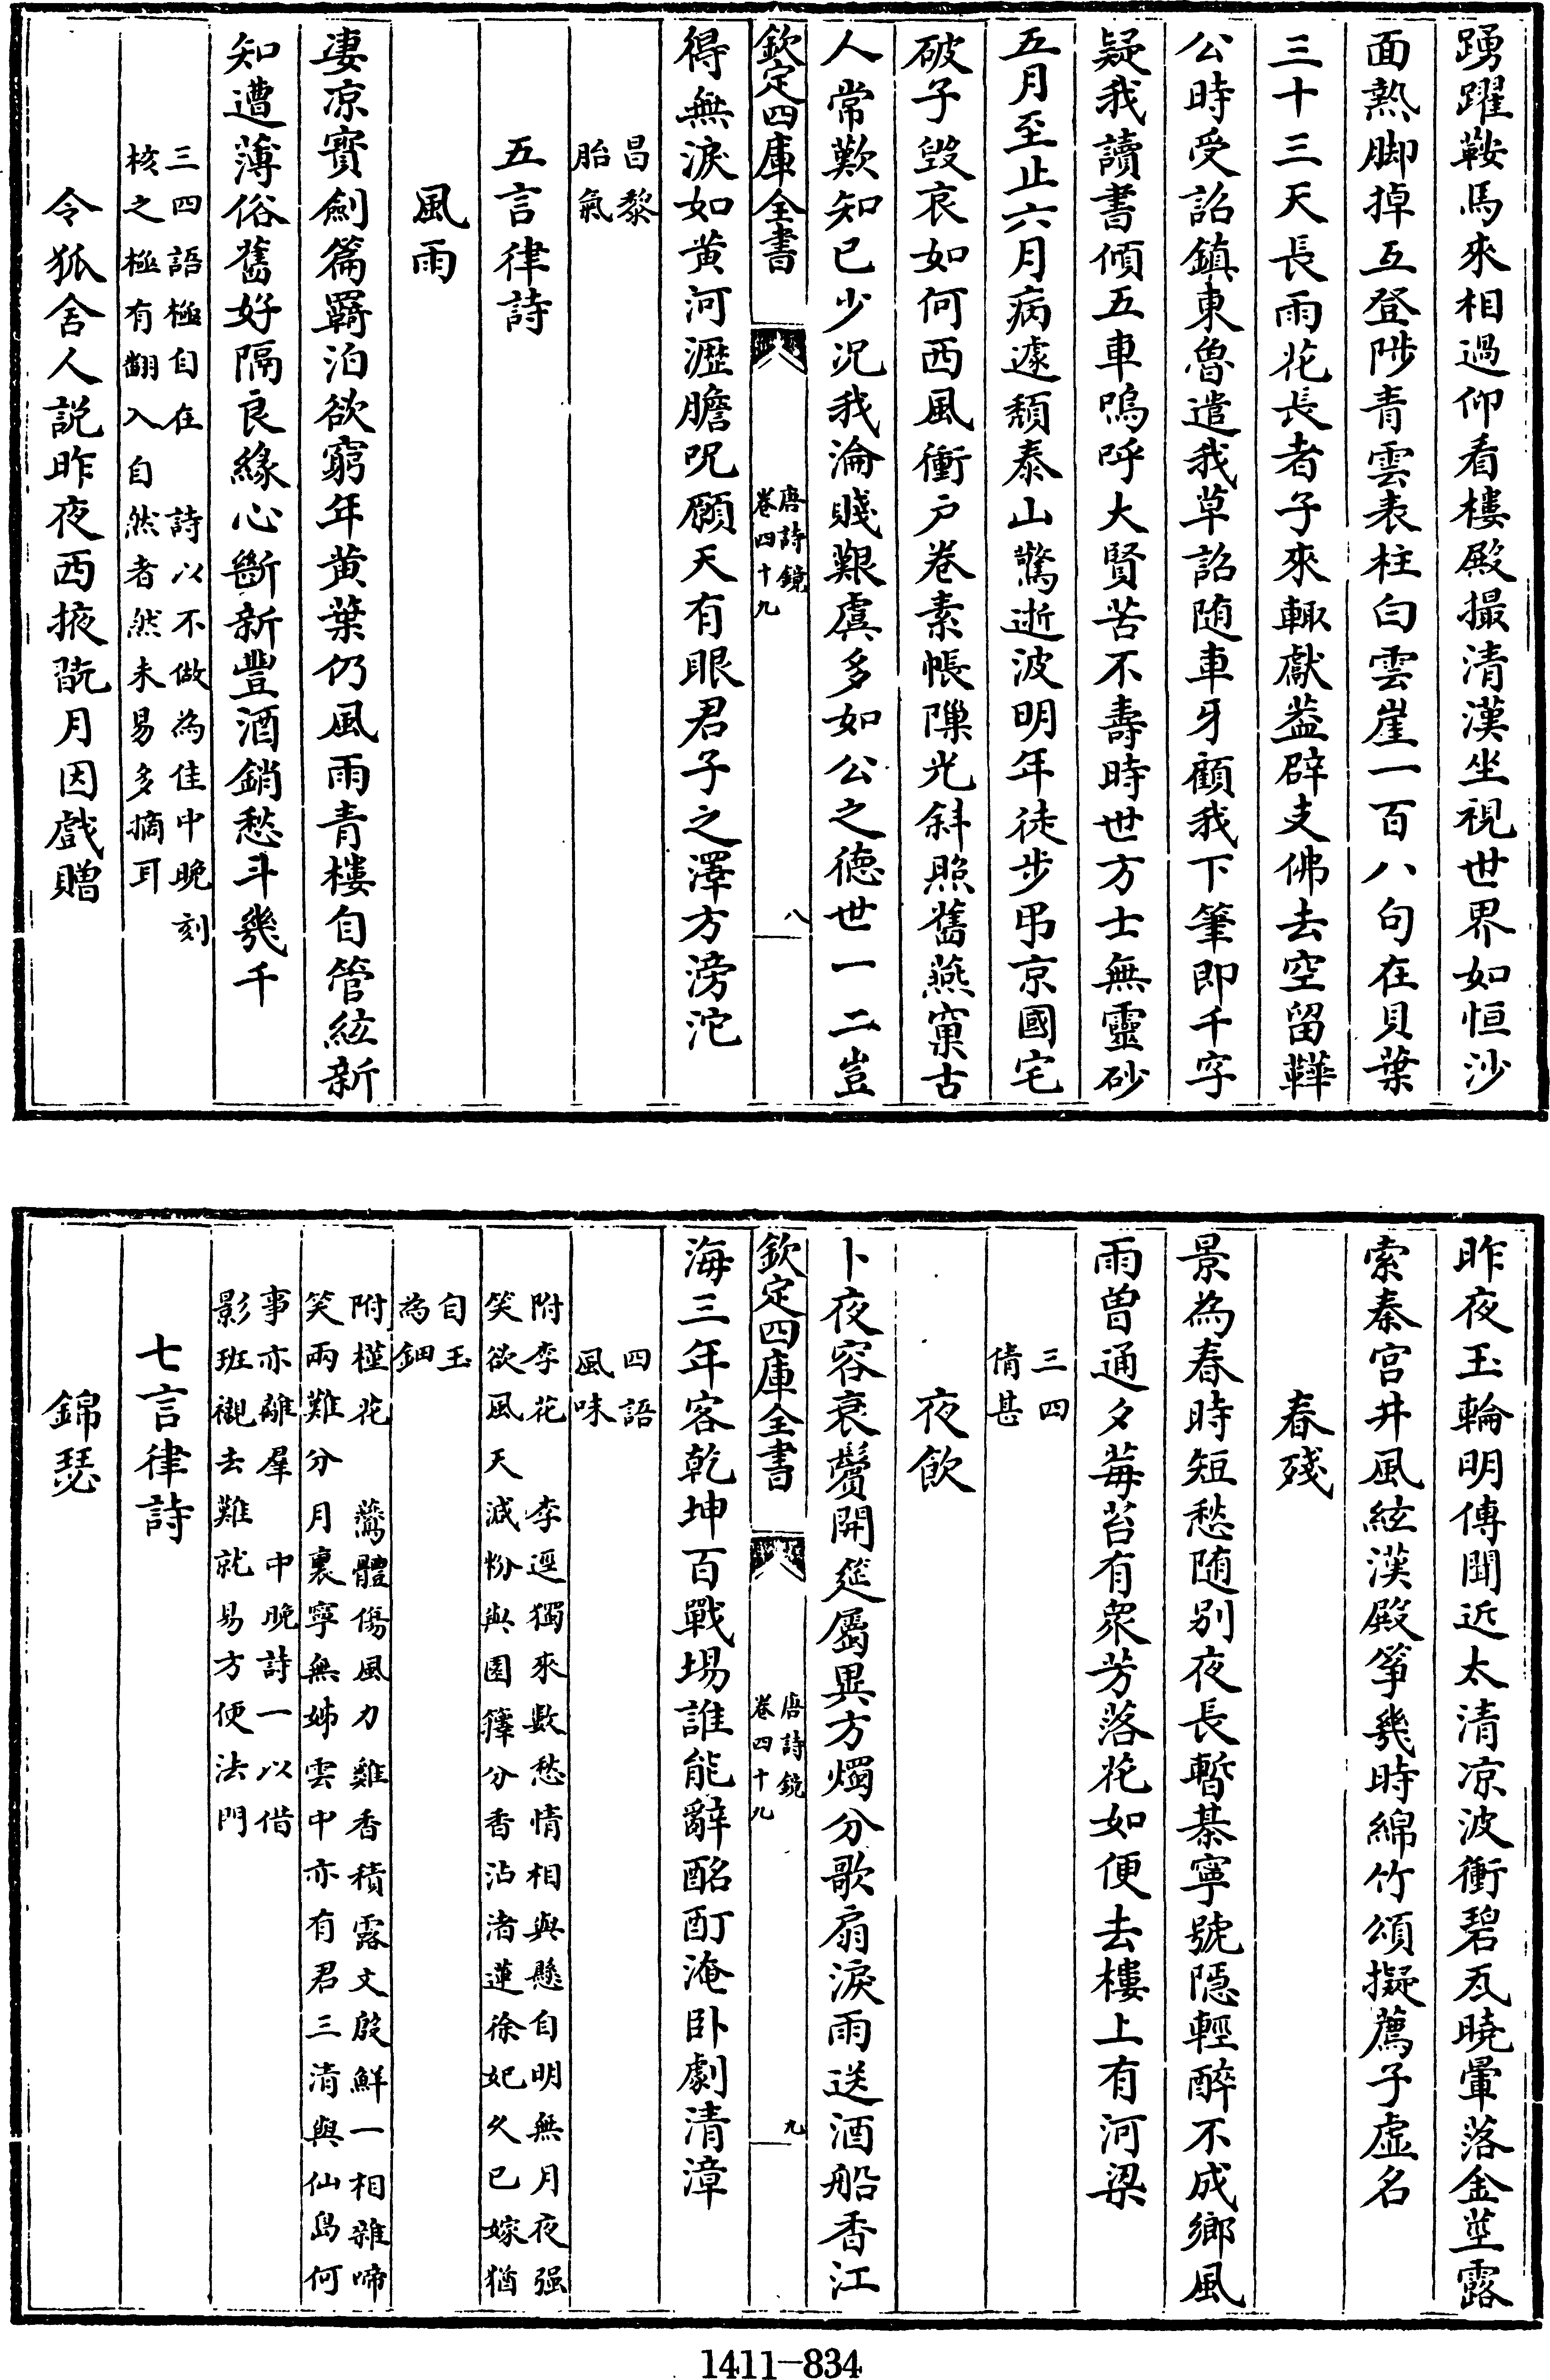 踴躍鞍馬來相過仰看樓殿撮清漢坐視世界如恒沙
面熱脚掉互登陟青雲表柱白雲崖一百八句在貝葉
三十三天長雨花長者子來輙獻葢辟支佛去空留鞾
公時受詔鎮東魯遣我草詔随車牙顧我下筆即千字
疑我讀書傾五車嗚呼大賢苦不壽時世方士無靈砂
五月至止六月病遽頽泰山驚逝波明年徒步弔京國宅
破子毁哀如何西風衝户卷素帳隟光斜照舊燕窠古
人常歎知已少况我淪賤艱虞多如公之德世一二豈
欽定四庫全書
唐詩鏡
卷四十九
八
得無淚如黄河瀝膽呪願天有眼君子之澤方滂沱
昌黎
胎氣
五言律詩
風雨
凄凉寳劒篇羇泊欲窮年黄葉仍風雨青樓自管絃新
知遭薄俗舊好隔良緣心斷新豐酒銷愁斗幾千
三四語極自在　詩以不做為佳中晚刻
核之極有翻入自然者然未易多摘耳
令狐舍人説昨夜西掖翫月因戲贈
昨夜玉輪明傳聞近太清凉波衝碧瓦曉暈落金莖露
索秦宫井風絃漢殿筝幾時綿竹頌擬薦子虚名
春殘
景為春時短愁随别夜長暫棊寧號隱輕醉不成鄉風
雨曽通夕莓苔有衆芳落花如便去樓上有河梁
三四
倩甚
夜飲
卜夜容衰鬢開筵屬異方燭分歌扇淚雨送酒船香江
欽定四庫全書
唐詩鏡
卷四十九
九
海三年客乾坤百戰場誰能辭酩酊淹卧劇清漳
四語
風味
附李花　李逕獨來數愁情相與懸自明無月夜强
笑欲風天减粉與園籜分香沾渚蓮徐妃久已嫁猶
自玉
為鈿
附槿花　鷰體傷風力雞香積露文殷鮮一相雜啼
笑兩難分月裏寧無姊雲中亦有君三清與仙島何
事亦離羣　中晚詩一以借
影班襯去難就易方便法門
七言律詩
錦瑟
1411—834